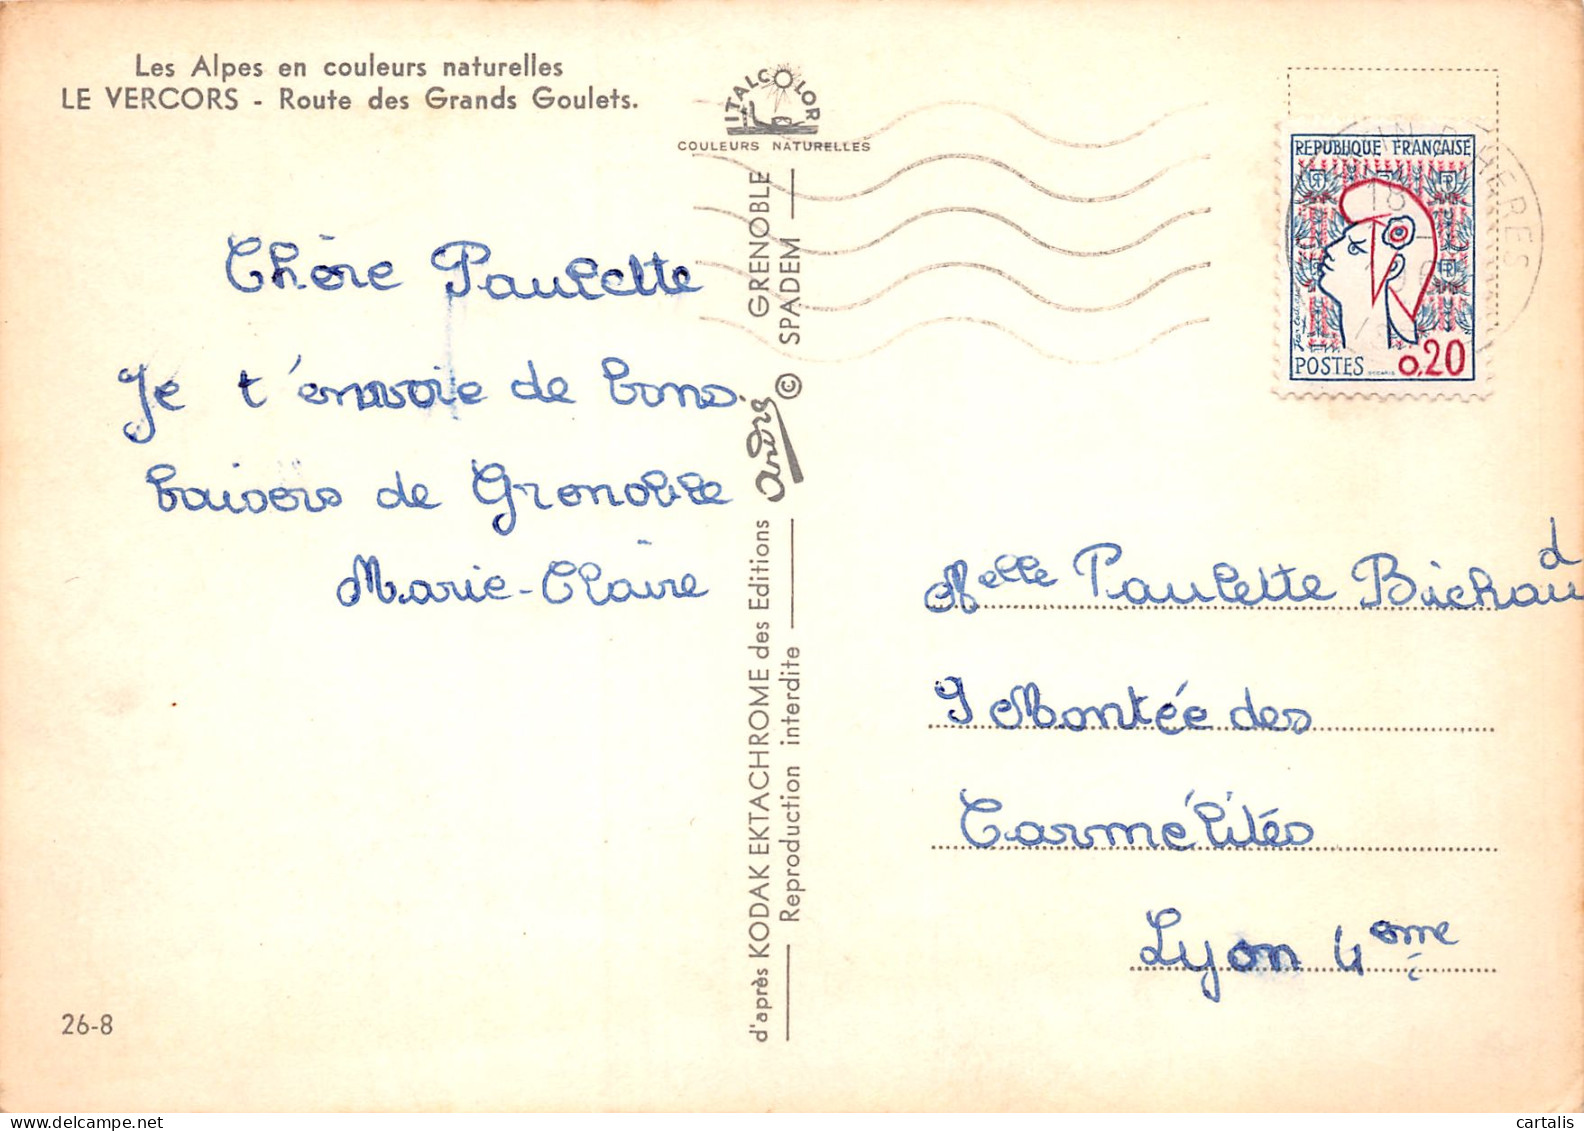 Les Alpes en couleurs naturelles
LE VERCORS - Route des Grands Goulets.
ITALCOLOR
COULEURS NATURELLES
Chère Paulette
Je t'envoie de bons
baisers de Grenoble
Marie-Claire
26-8
d'après KODAK EKTACHROME des Editions André © GRENOBLE
Reproduction interdite SPADEM
REPUBLIQUE FRANÇAISE
POSTES 0,20
Melle Paulette Bichaud
9 Montée des
Carmélités
Lyon 4ème
cartalis